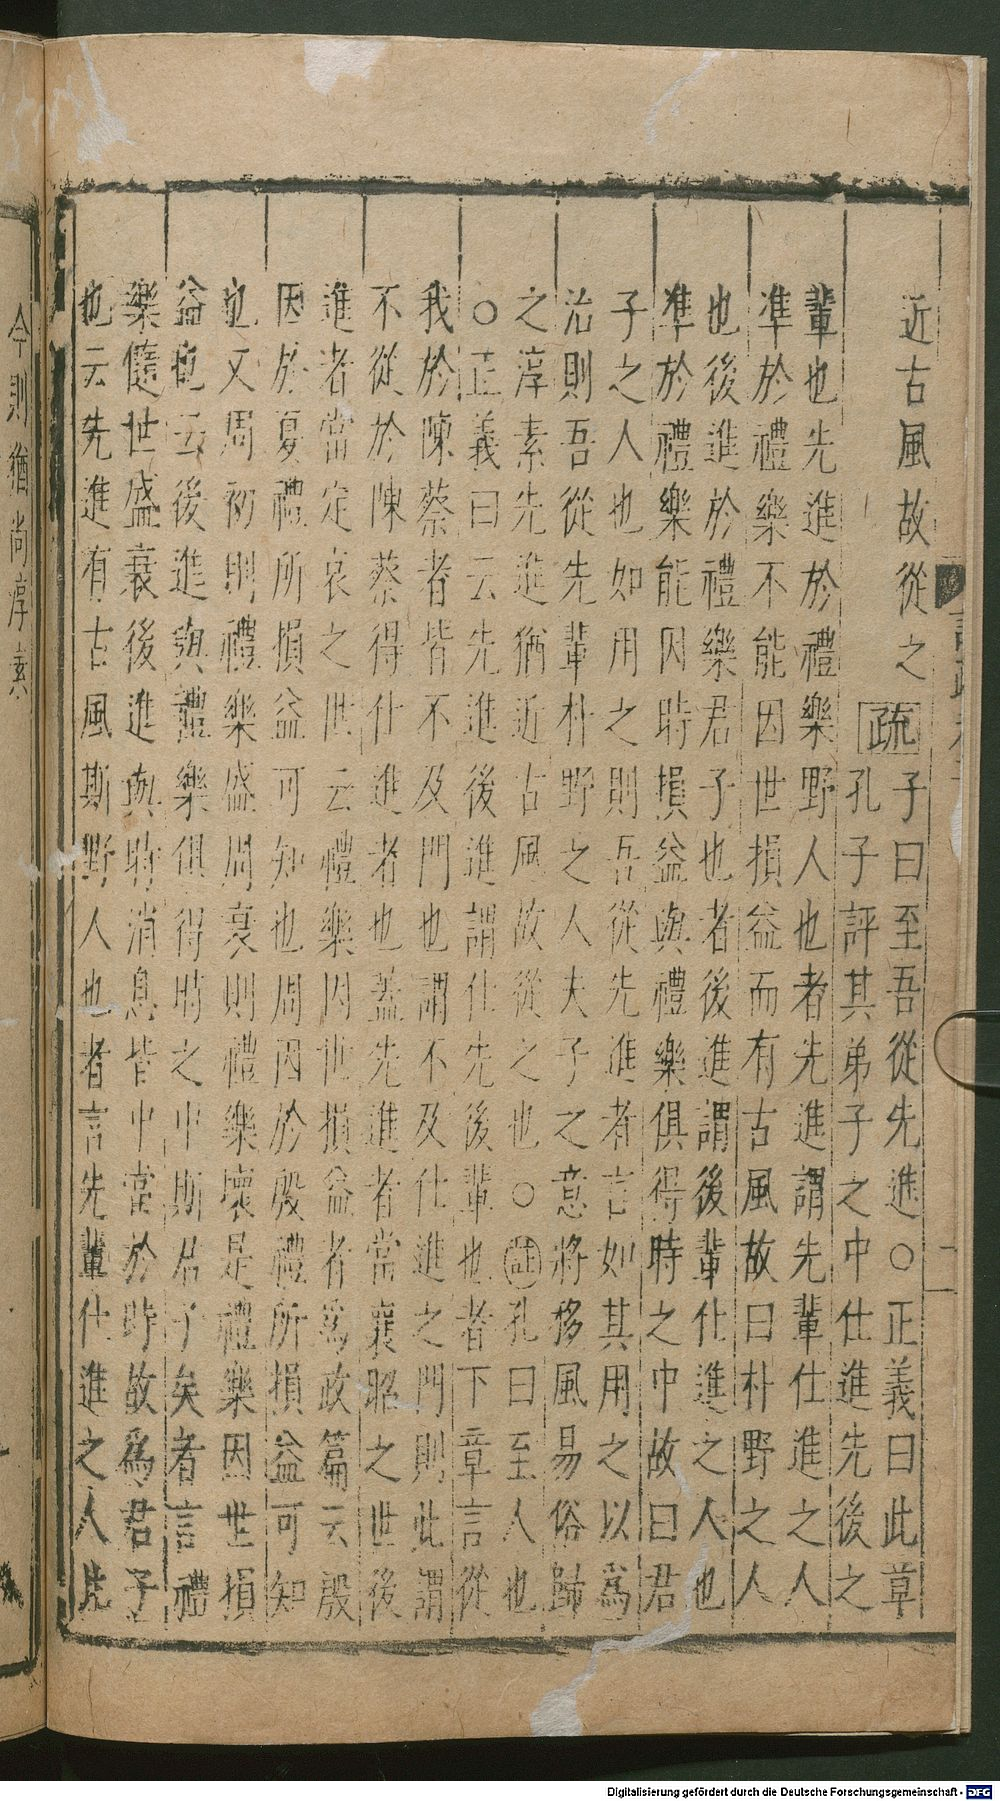 近古風故從之疏子曰至吾從先進○正義曰此章
孔子評其弟子之中仕進先後之
輩也先進於禮樂野人也者先進謂先輩仕進之人
準於禮樂不能因世損益而有古風故曰朴野之人
也後進於禮樂君子也者後進謂後輩仕進之人也
準於禮樂能因時損益與禮樂俱得時之中故曰君
子之人也如用之則吾從先進者言如其用之以為
治則吾從先輩朴野之人夫子之意將移風易俗歸
之淳素先進猶近古風故從之也○註孔曰至人也
○正義曰云先進後進謂仕先後輩也者下章言從
我於陳蔡者皆不及門也謂不及仕進之門則此謂
不從於陳蔡得仕進者也蓋先進者當襄昭之世後
進者當定哀之世云禮樂因世損益者為政篇云殷
因於夏禮所損益可知也周因於殷禮所損益可知
也又周初則禮樂盛周衰則禮樂壞是禮樂因世損
益也云後進與禮樂俱得時之中斯君子矣者言禮
樂隨世盛衰後進與時消息皆中當於時故為君子
也云先進有古風斯野人也者言先輩仕進之人比
今則猶尚淳素
Digitalisierung gefördert durch die Deutsche Forschungsgemeinschaft - DFG